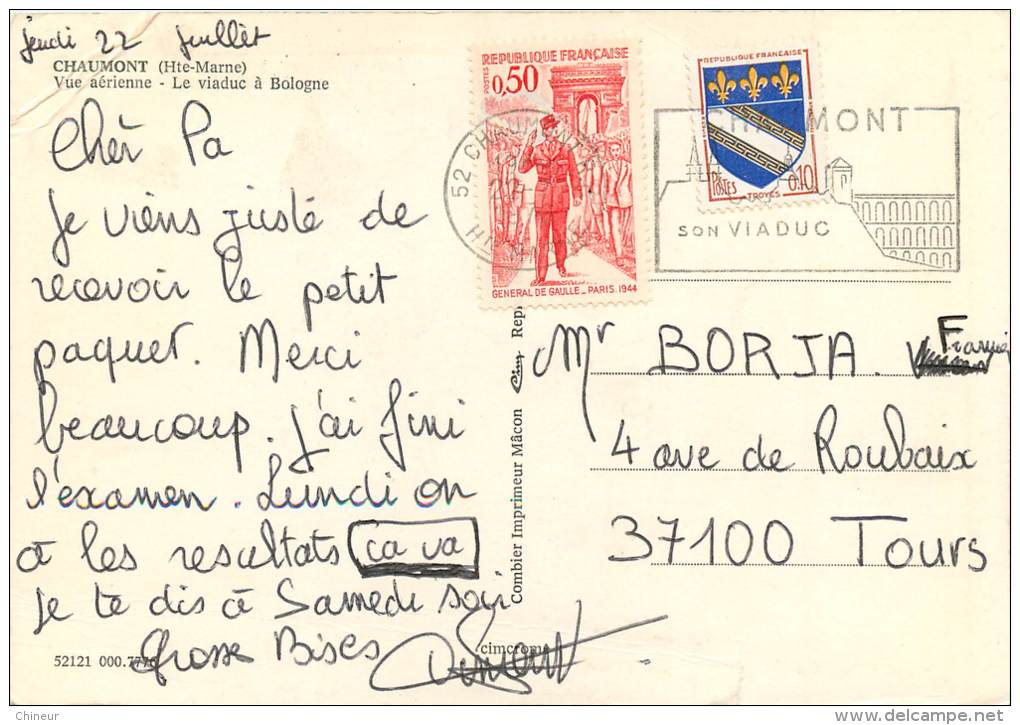 jeudi 22 juillet
CHAUMONT (Hte-Marne)
Vue aérienne - Le viaduc à Bologne
Cher Pa
Je viens juste de
recevoir le petit
paquet. Merci
beaucoup. J'ai fini
l'examen. Lundi on
a les resultats ça va
je te dis à Samedi soir
Grosse Bises
52121 000.7776
cimcrome
Combier Imprimeur Mâcon Cim Rep
POSTES RÉPUBLIQUE FRANÇAISE
0,50
GENERAL DE GAULLE - PARIS 1944
52 CHAUMONT
REPUBLIQUE FRANÇAISE
POSTES 0,10
TROYES
CHAUMONT
SON VIADUC
Mr BORJA
4 ave de Roubaix
37100 Tours
Chineur
www.delcampe.net